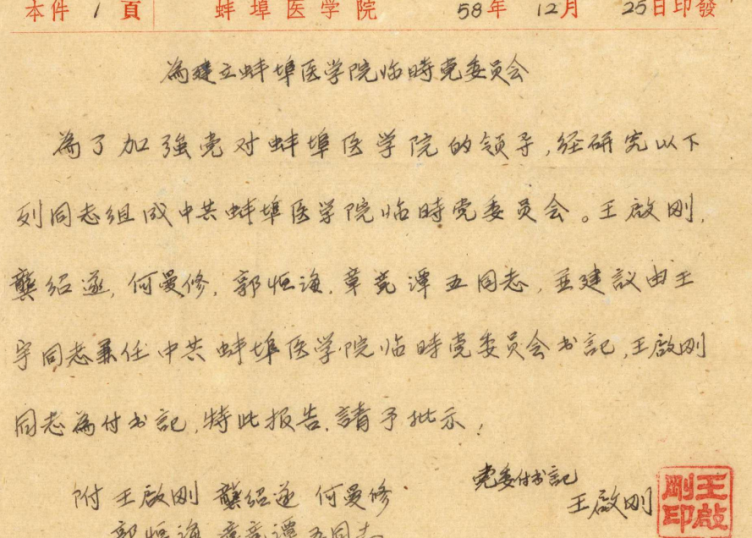 本件 1 頁 蚌埠医学院 58年 12月 25日印發
為建立蚌埠医学院临時党委员会
為了加強党对蚌埠医学院的领导,经研究以下
列同志组成中共蚌埠医学院临時党委员会。王啟刚,
龔绍遂,何曼修,郭恒海,章竞譚五同志,並建議由王
宇同志兼任中共蚌埠医学院临時党委员会书記,王啟刚
同志為付书記,特此报告,請予批示!
党委付书記
王啟刚
王啟剛印
附王啟刚 龔绍遂 何曼修
郭恒海 章竞譚五同志